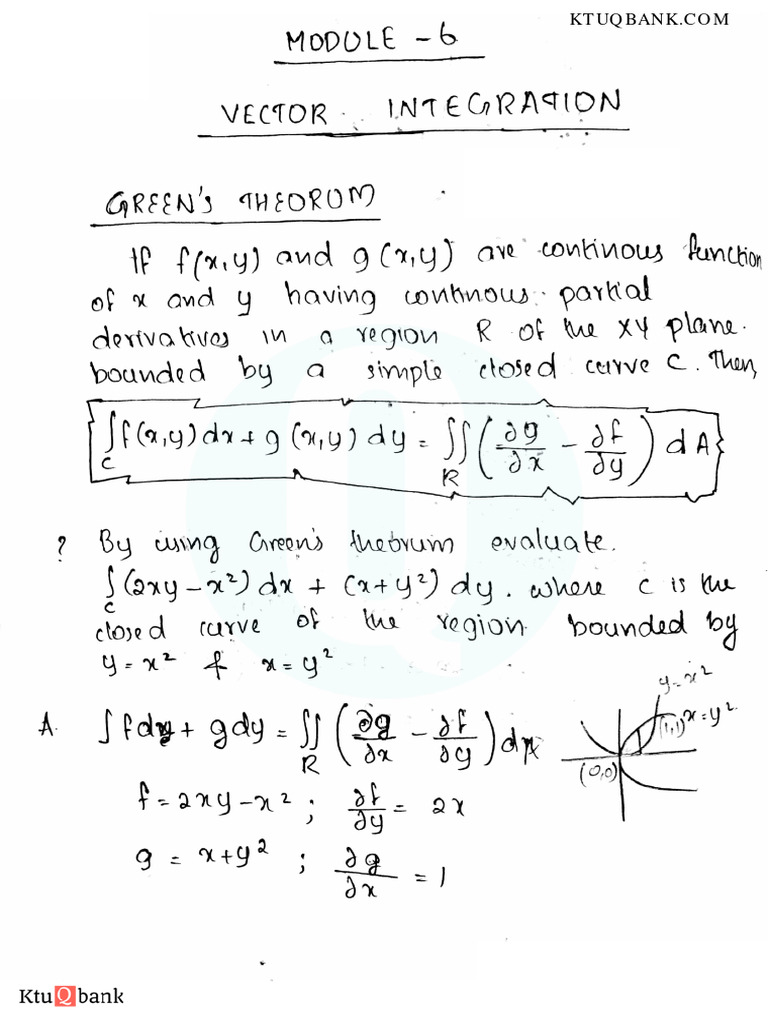 KTUQBANK.COM
MODULE - 6
VECTOR INTEGRATION
GREEN'S THEOROM
If f(x,y) and g(x,y) are continous function
of x and y having continous partial
derivatives in a region R of the XY plane.
bounded by a simple closed curve C. Then,
∫_C f(x,y) dx + g(x,y) dy = ∬_R (∂g/∂x - ∂f/∂y) dA
? By using Green's theorum evaluate.
∫_C (2xy - x²) dx + (x + y²) dy. where c is the
closed curve of the region bounded by
y = x² & x = y²
y = x²
x = y²
(1,1)
(0,0)
A. ∫ f dx + g dy = ∬_R (∂g/∂x - ∂f/∂y) dA
f = 2xy - x² ; ∂f/∂y = 2x
g = x + y² ; ∂g/∂x = 1
KtuQbank